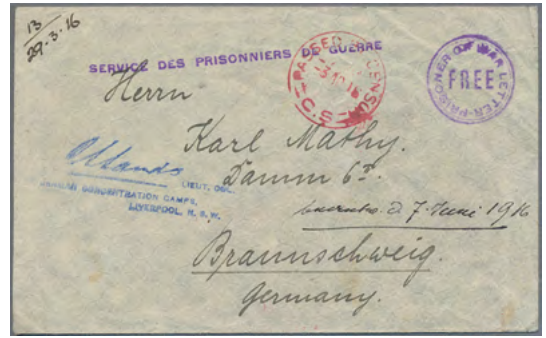 13
29.3.16
SERVICE DES PRISONNIERS DE GUERRE
PASSED CENSOR
C.S
PRISONER OF WAR LETTER
FREE
Herrn
Karl Mathy.
Damm 6
LIEUT. COL.
CONCENTRATION CAMPS,
LIVERPOOL, N. S. W.
d 7. Juni 1916
Braunschweig.
Germany.